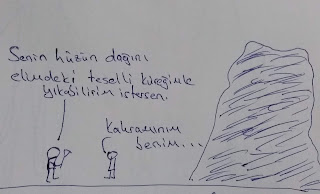 Senin hüzün dağını
elimdeki teselli küreğimle
yıkabilirim istersen.
Kahramanım
benim...